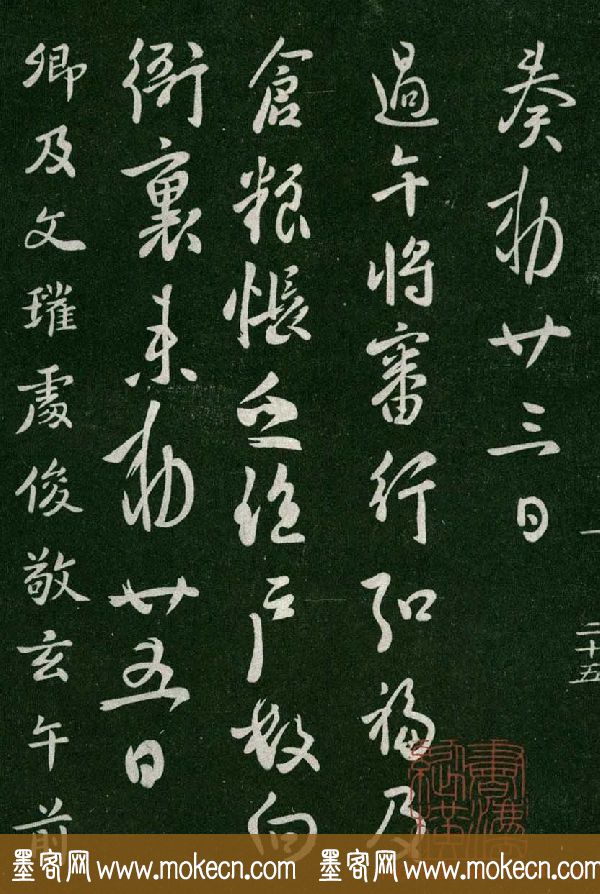 二十五
奏勅廿三日
過午将審行弘福及
倉粮帳户数向
衙裏来勅廿五日
卿及文瓘處俊敬玄午前
墨客网 www.mokecn.com 墨客网 www.mokecn.com